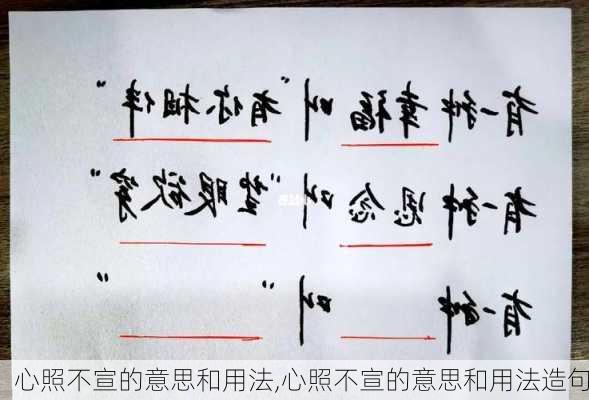 有一种幸福叫"有你相伴"
有一种思念叫"望眼欲穿"
有一种 叫" "
心照不宣的意思和用法,心照不宣的意思和用法造句